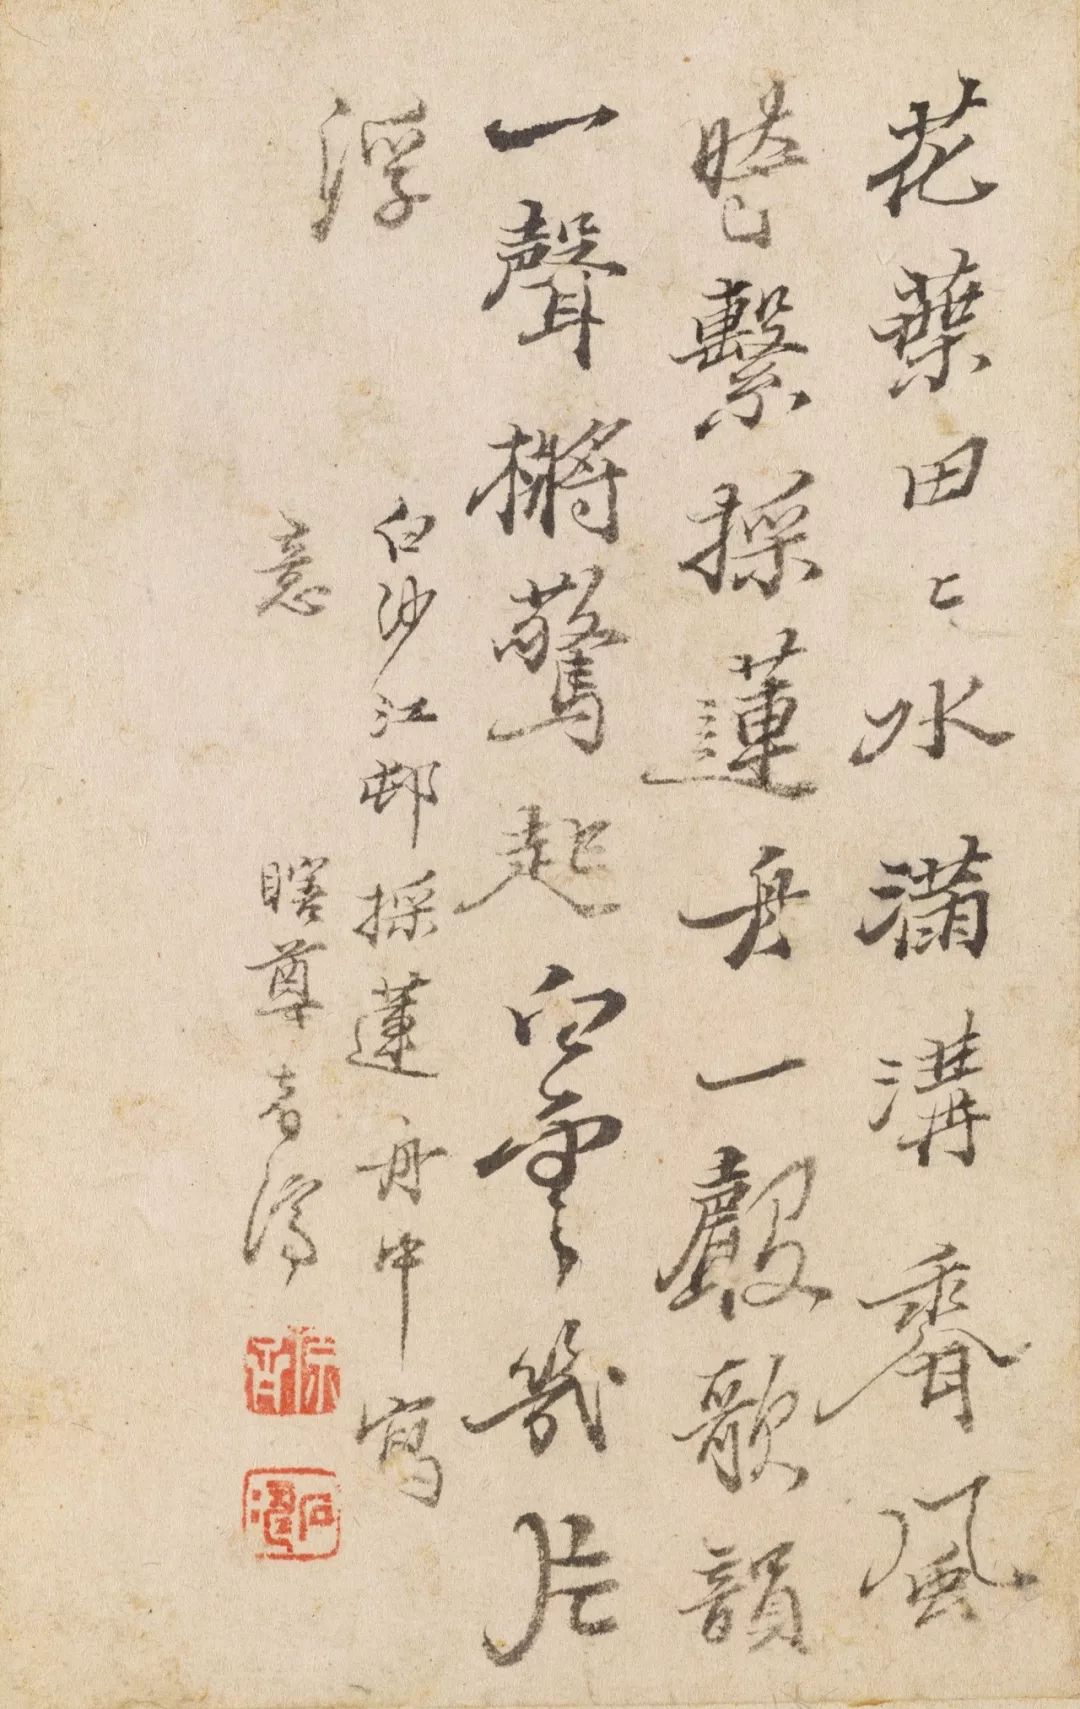 花葉田〻水滿溝香風
時繫採蓮舟一聲歌韻
一聲槳驚起白雲幾片
浮
白沙江邨採蓮舟中寫
意
瞎尊者濟